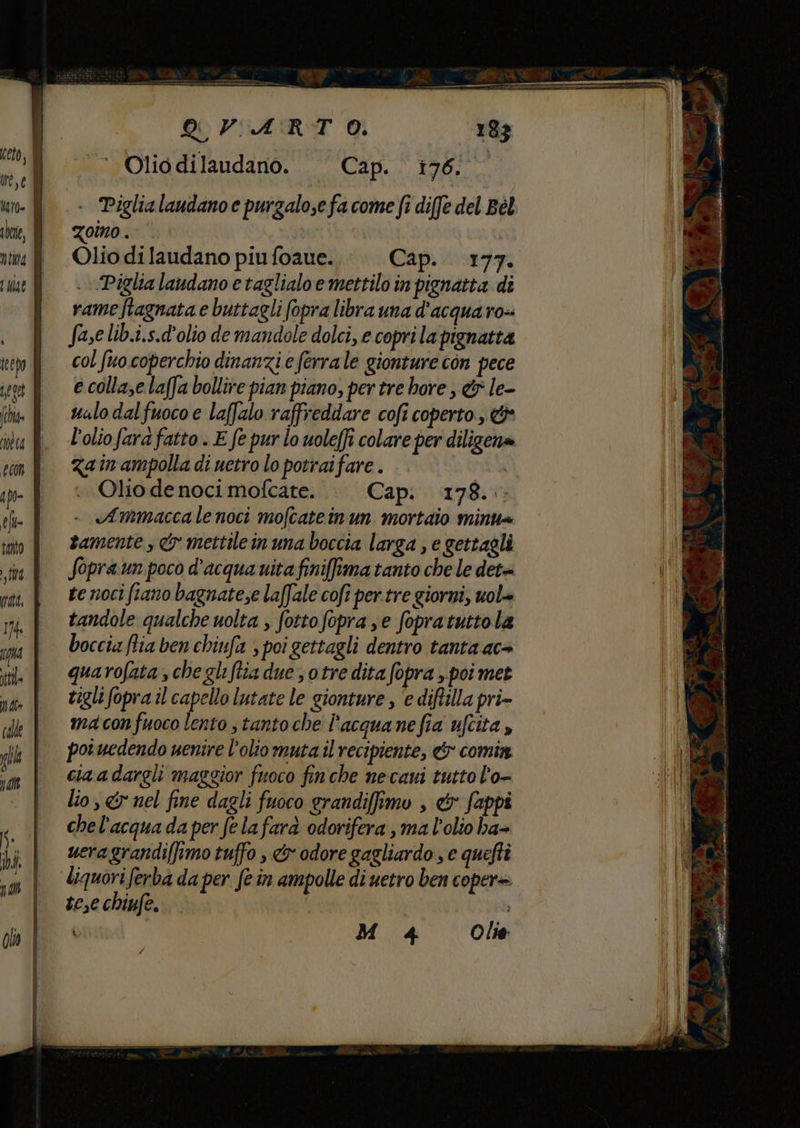 QVARTO. 183
Olio di laudano. Cap. 176.
Piglia laudano e purgalo,e fa come ſi diſſe del Bel
zoino.
Olio di laudano piu ſoaue. Cap. 177.
Piglia laudano e taglialo e mettilo in pignatta di
rame ſtagnata e buttagli ſopra libra una d'acqua ro-
ſa,e lib.i.s.d'olio de mandole dolci, e copri la pignatta
col ſuo coperchio dinanzi e ferra le gionture con pece
e colla,e laſſa bollire pian piano, per tre hore, & le-
ualo dal fuoco e laſſalo raffreddare coſi coperto, &
l'olio ſarà fatto. E ſe pur lo uoleſſi colare per diligen-
za in ampolla di uetro lo potrai fare.
Olio de noci moſcate. Cap. 178.
Ammacca le noci moſcate in un mortaio minu-
tamente, & mettile in una boccia larga, e gettagli
ſopra un poco d'acqua uita finiſſima tanto che le det-
te noci ſiano bagnate,e laſſale coſi per tre giorni, uol-
tandole qualche uolta, ſotto ſopra, e ſopra tutto la
boccia ſtia ben chiuſa, poi gettagli dentro tanta ac-
qua roſata, che gli ſtia due, o tre dita ſopra, poi met
tigli ſopra il capello lutate le gionture, e diſtilla pri-
ma con fuoco lento, tanto che l'acqua ne ſia uſcita,
poi uedendo uenire l'olio muta il recipiente, & comin
cia a dargli maggior fuoco fin che ne caui tutto l'o-
lio, & nel fine dagli fuoco grandiſſimo, & ſappi
che l'acqua da per ſe la farà odorifera, ma l'olio ha-
uera grandiſſimo tuffo, & odore gagliardo, e queſti
liquori ſerba da per ſe in ampolle di uetro ben coper-
te,e chiuſe.
M 4 Olio